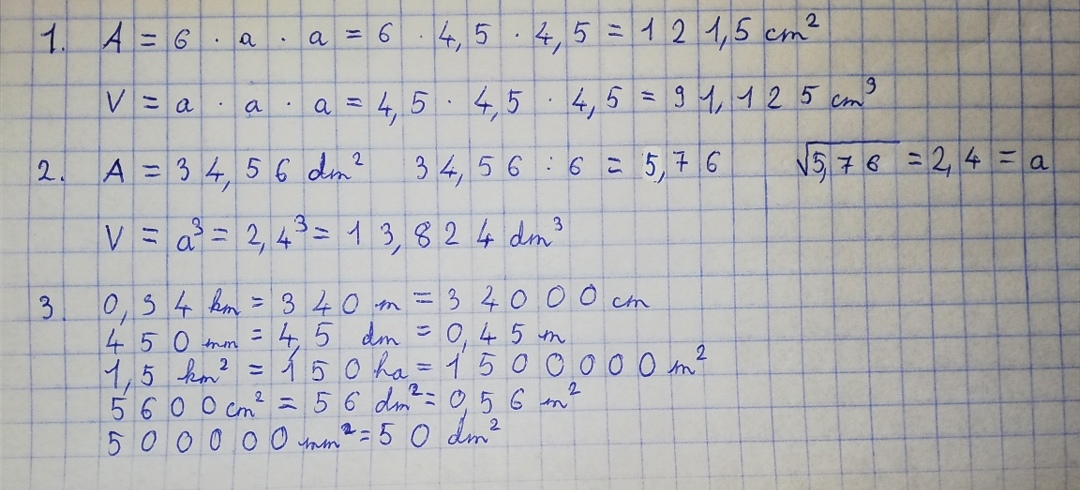 1. A = 6 · a · a = 6 · 4,5 · 4,5 = 121,5 cm²
V = a · a · a = 4,5 · 4,5 · 4,5 = 91,125 cm³
2. A = 34,56 dm² 34,56 : 6 = 5,76 √5,76 = 2,4 = a
V = a³ = 2,4³ = 13,824 dm³
3. 0,34 km = 340 m = 34000 cm
450 mm = 4,5 dm = 0,45 m
1,5 km² = 150 ha = 1500000 m²
5600 cm² = 56 dm² = 0,56 m²
500000 mm² = 50 dm²